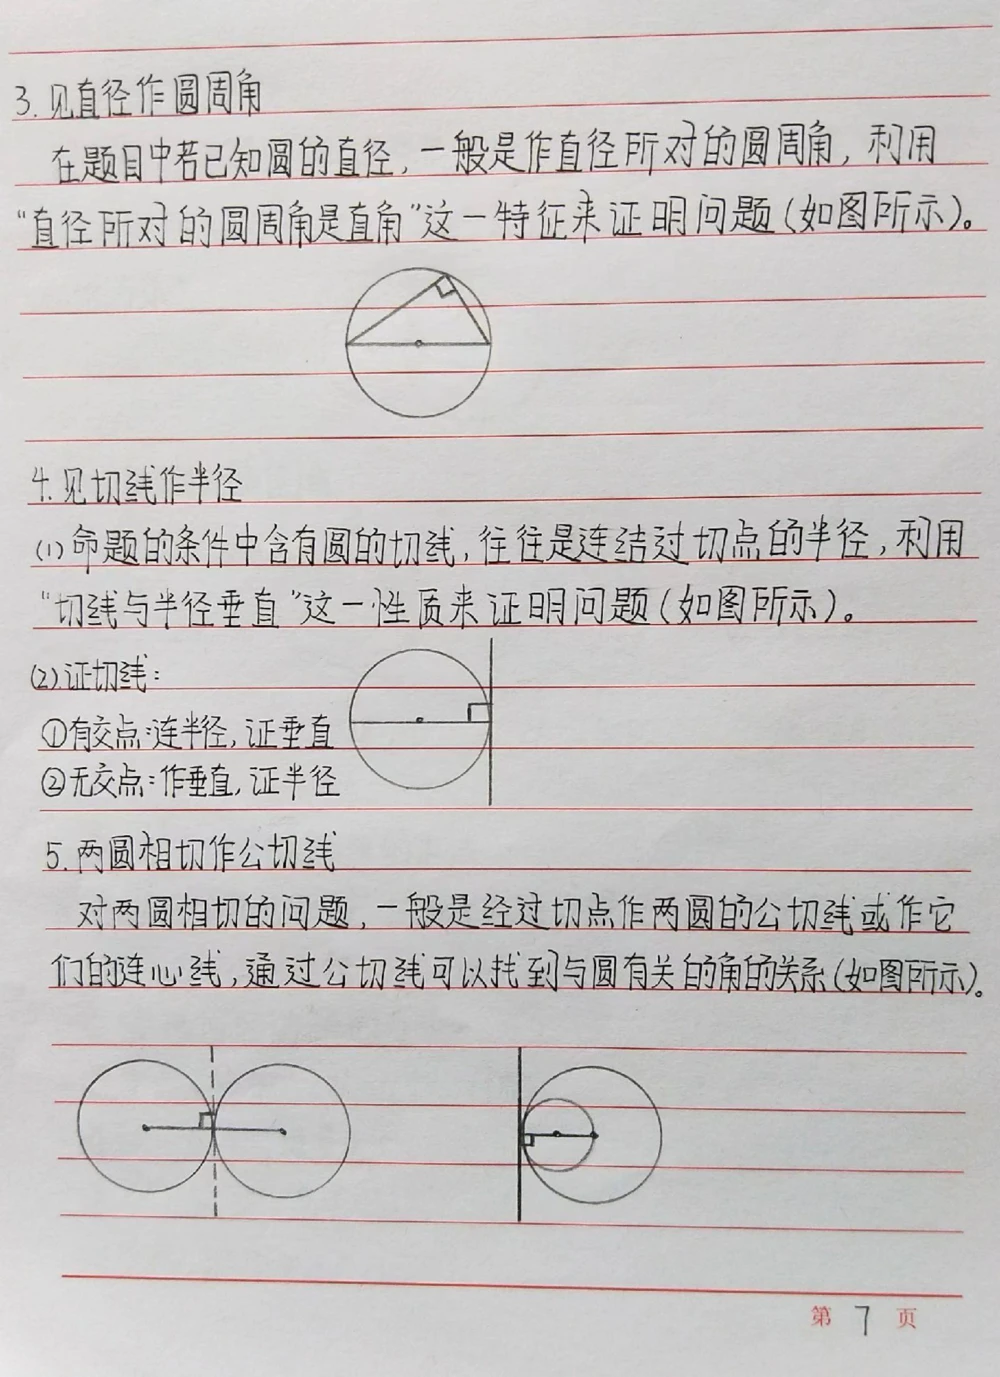 3. 见直径作圆周角
在题目中若已知圆的直径，一般是作直径所对的圆周角，利用
“直径所对的圆周角是直角”这一特征来证明问题（如图所示）。
4. 见切线作半径
(1) 命题的条件中含有圆的切线，往往是连结过切点的半径，利用
“切线与半径垂直”这一性质来证明问题（如图所示）。
(2) 证切线：
①有交点：连半径，证垂直
②无交点：作垂直，证半径
5. 两圆相切作公切线
对两圆相切的问题，一般是经过切点作两圆的公切线或作它
们的连心线，通过公切线可以找到与圆有关的角的关系（如图所示）。
第 7 页